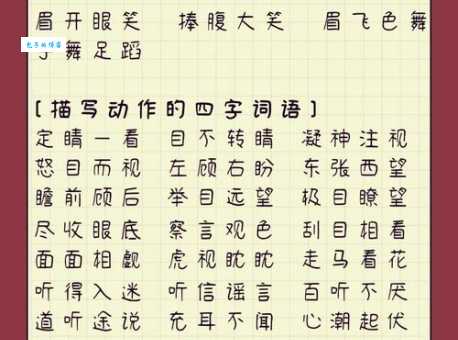 眉开眼笑 捧腹大笑 眉飞色舞
舞足蹈
[描写动作的四字词语]
定睛一看 目不转睛 凝神注视
怒目而视 左顾右盼 东张西望
瞻前顾后 举目远望 极目瞭望
尽收眼底 察言观色 刮目相看
面面相觑 虎视眈眈 走马看花
听得入迷 听信谣言 百听不厌
道听途说 充耳不闻 心潮起伏